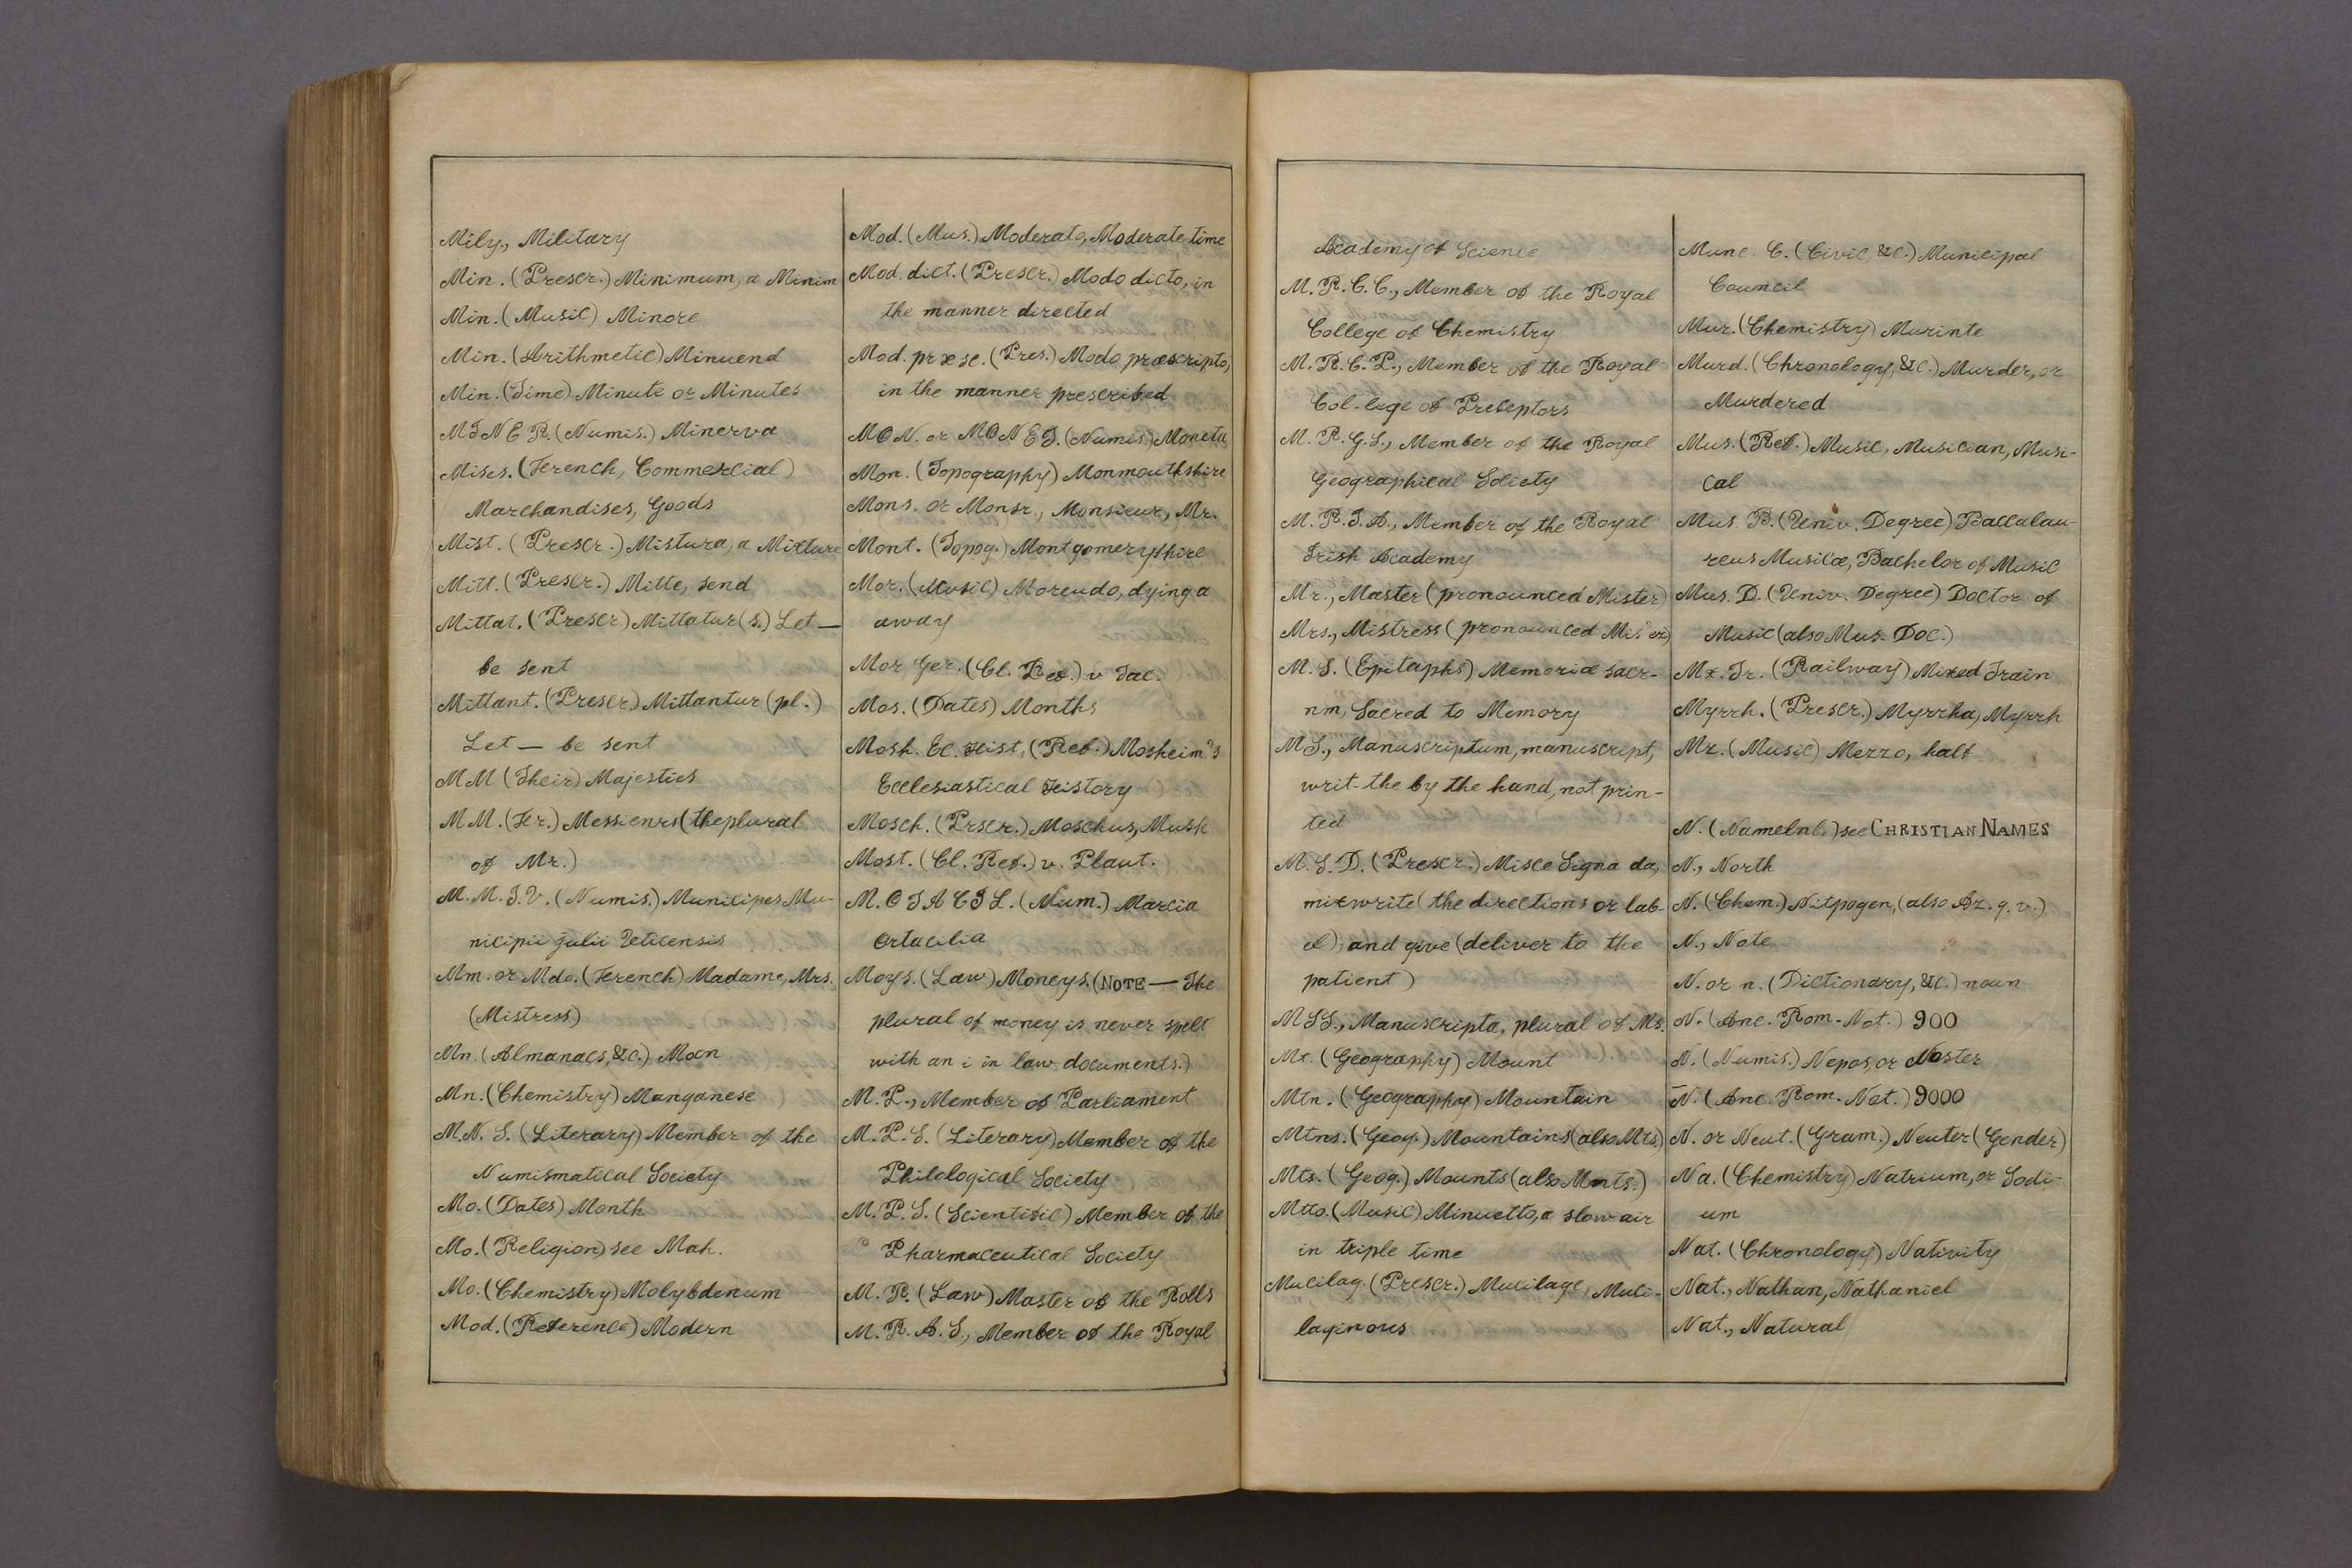 Mily., Military
Min. (Prescr.) Minimum, a Minim
Min. (Music) Minore
Min. (Arithmetic) Minuend
Min. (Time) Minute or Minutes
MINER. (Numis.) Minerva
Mises. (French, Commercial)
Marchandises, Goods
Mist. (Prescr.) Mistura, a Mixture
Mitt. (Prescr.) Mitte, send
Mittat. (Prescr.) Mittatur (s.) Let —
be sent
Mittant. (Prescr.) Mittantur (pl.)
Let — be sent
MM (Their) Majesties
MM. (Fr.) Messienrs (the plural
of Mr.)
M. M. I. V. (Numis.) Municipes Mu-
nicipii Julii Uticensis
Mm. or Mdo. (French) Madame, Mrs.
(Mistress)
Mn. (Almanacs, &c.) Moon
Mn. (Chemistry) Manganese
M.N. S. (Literary) Member of the
Numismatical Society
Mo. (Dates) Month
Mo. (Religion) see Mah.
Mo. (Chemistry) Molybdenum
Mod. (Reference) Modern
Mod. (Mus.) Moderato, Moderate time
Mod. dict. (Prescr.) Modo dicto, in
the manner directed
Mod. præsc. (Pres.) Modo præscripto,
in the manner prescribed
MON. or MONET. (Numis.) Moneta
Mon. (Topography) Monmouthshire
Mons. or Monsr., Monsieur, Mr.
Mont. (Topog.) Montgomeryshire
Mor. (Music) Moreudo, dying a
away
Mor Ger. (Cl. Ref.) v Tac.
Mos. (Dates) Months
Mosh. Ec. Hist. (Ref.) Mosheim's
Ecclesiastical History
Mosch. (Prscr.) Moschus, Musk
Most. (Cl. Ref.) v. Plaut.
M. OTACIL. (Num.) Marcia
Ortacilia
Moys. (Law) Moneys. (NOTE — The
plural of money is never spelt
with an i in law documents.)
M. P., Member of Parliament
M. P. S. (Literary) Member of the
Philological Society
M. P. S. (Scientific) Member of the
Pharmaceutical Society
M. R. (Law) Master of the Rolls
M. R. A. S., Member of the Royal
Academy of Science
M. R. C. C., Member of the Royal
College of Chemistry
M. R. C. P., Member of the Royal
Col-lege of Preceptors
M. R. G. S., Member of the Royal
Geographical Society
M. R. I. A., Member of the Royal
Irish Academy
Mr., Master (pronounced Mister)
Mrs., Mistress (pronounced Mis'es)
M. S. (Epitaphs) Memoriæ sacr-
nm, Sacred to Memory
MS., Manuscriptum, manuscript,
writ-the by the hand, not prin-
ted
M. S. D. (Prescr.) Misce Signa da,
mix write (the directions or lab-
el), and give (deliver to the
patient)
MSS., Manuscripta, plural of Ms.
Mt. (Geography) Mount
Mtn. (Geography) Mountain
Mtns. (Geog.) Mountains (also Mts.)
Mts. (Geog.) Mounts (also Mnts.)
Mtto. (Music) Minuetto, a slow air
in triple time
Mucilag. (Prescr.) Mucilage, Muci-
laginous
Munc. C. (Civic, &c.) Municipal
Council
Mur. (Chemistry) Murinte
Murd. (Chronology, &c.) Murder, or
Murdered
Mus. (Ref.) Music, Musician, Musi-
cal
Mus. B. (Univ. Degree) Baccalau-
reus Musicæ, Bachelor of Music
Mus. D. (Univ. Degree) Doctor of
Music (also Mus. Doc.)
Mx. Tr. (Railway) Mixed Train
Myrrh. (Prescr.) Myrrha, Myrrh
Mz. (Music) Mezzo, half
N. (Namelnl.) see CHRISTIAN NAMES
N., North
N. (Chem.) Nitpogen, (also Az. q. v.)
N., Note
N. or n. (Dictionary, &c.) noun
N. (Anc. Rom. Not.) 900
N. (Numis.) Nepos, or Noster
N̄. (Anc. Rom. Not.) 9000
N. or Neut. (Gram.) Neuter (Gender)
Na. (Chemistry) Natrium, or Sodi-
um
Nat. (Chronology) Nativity
Nat., Nathan, Nathaniel
Nat., Natural